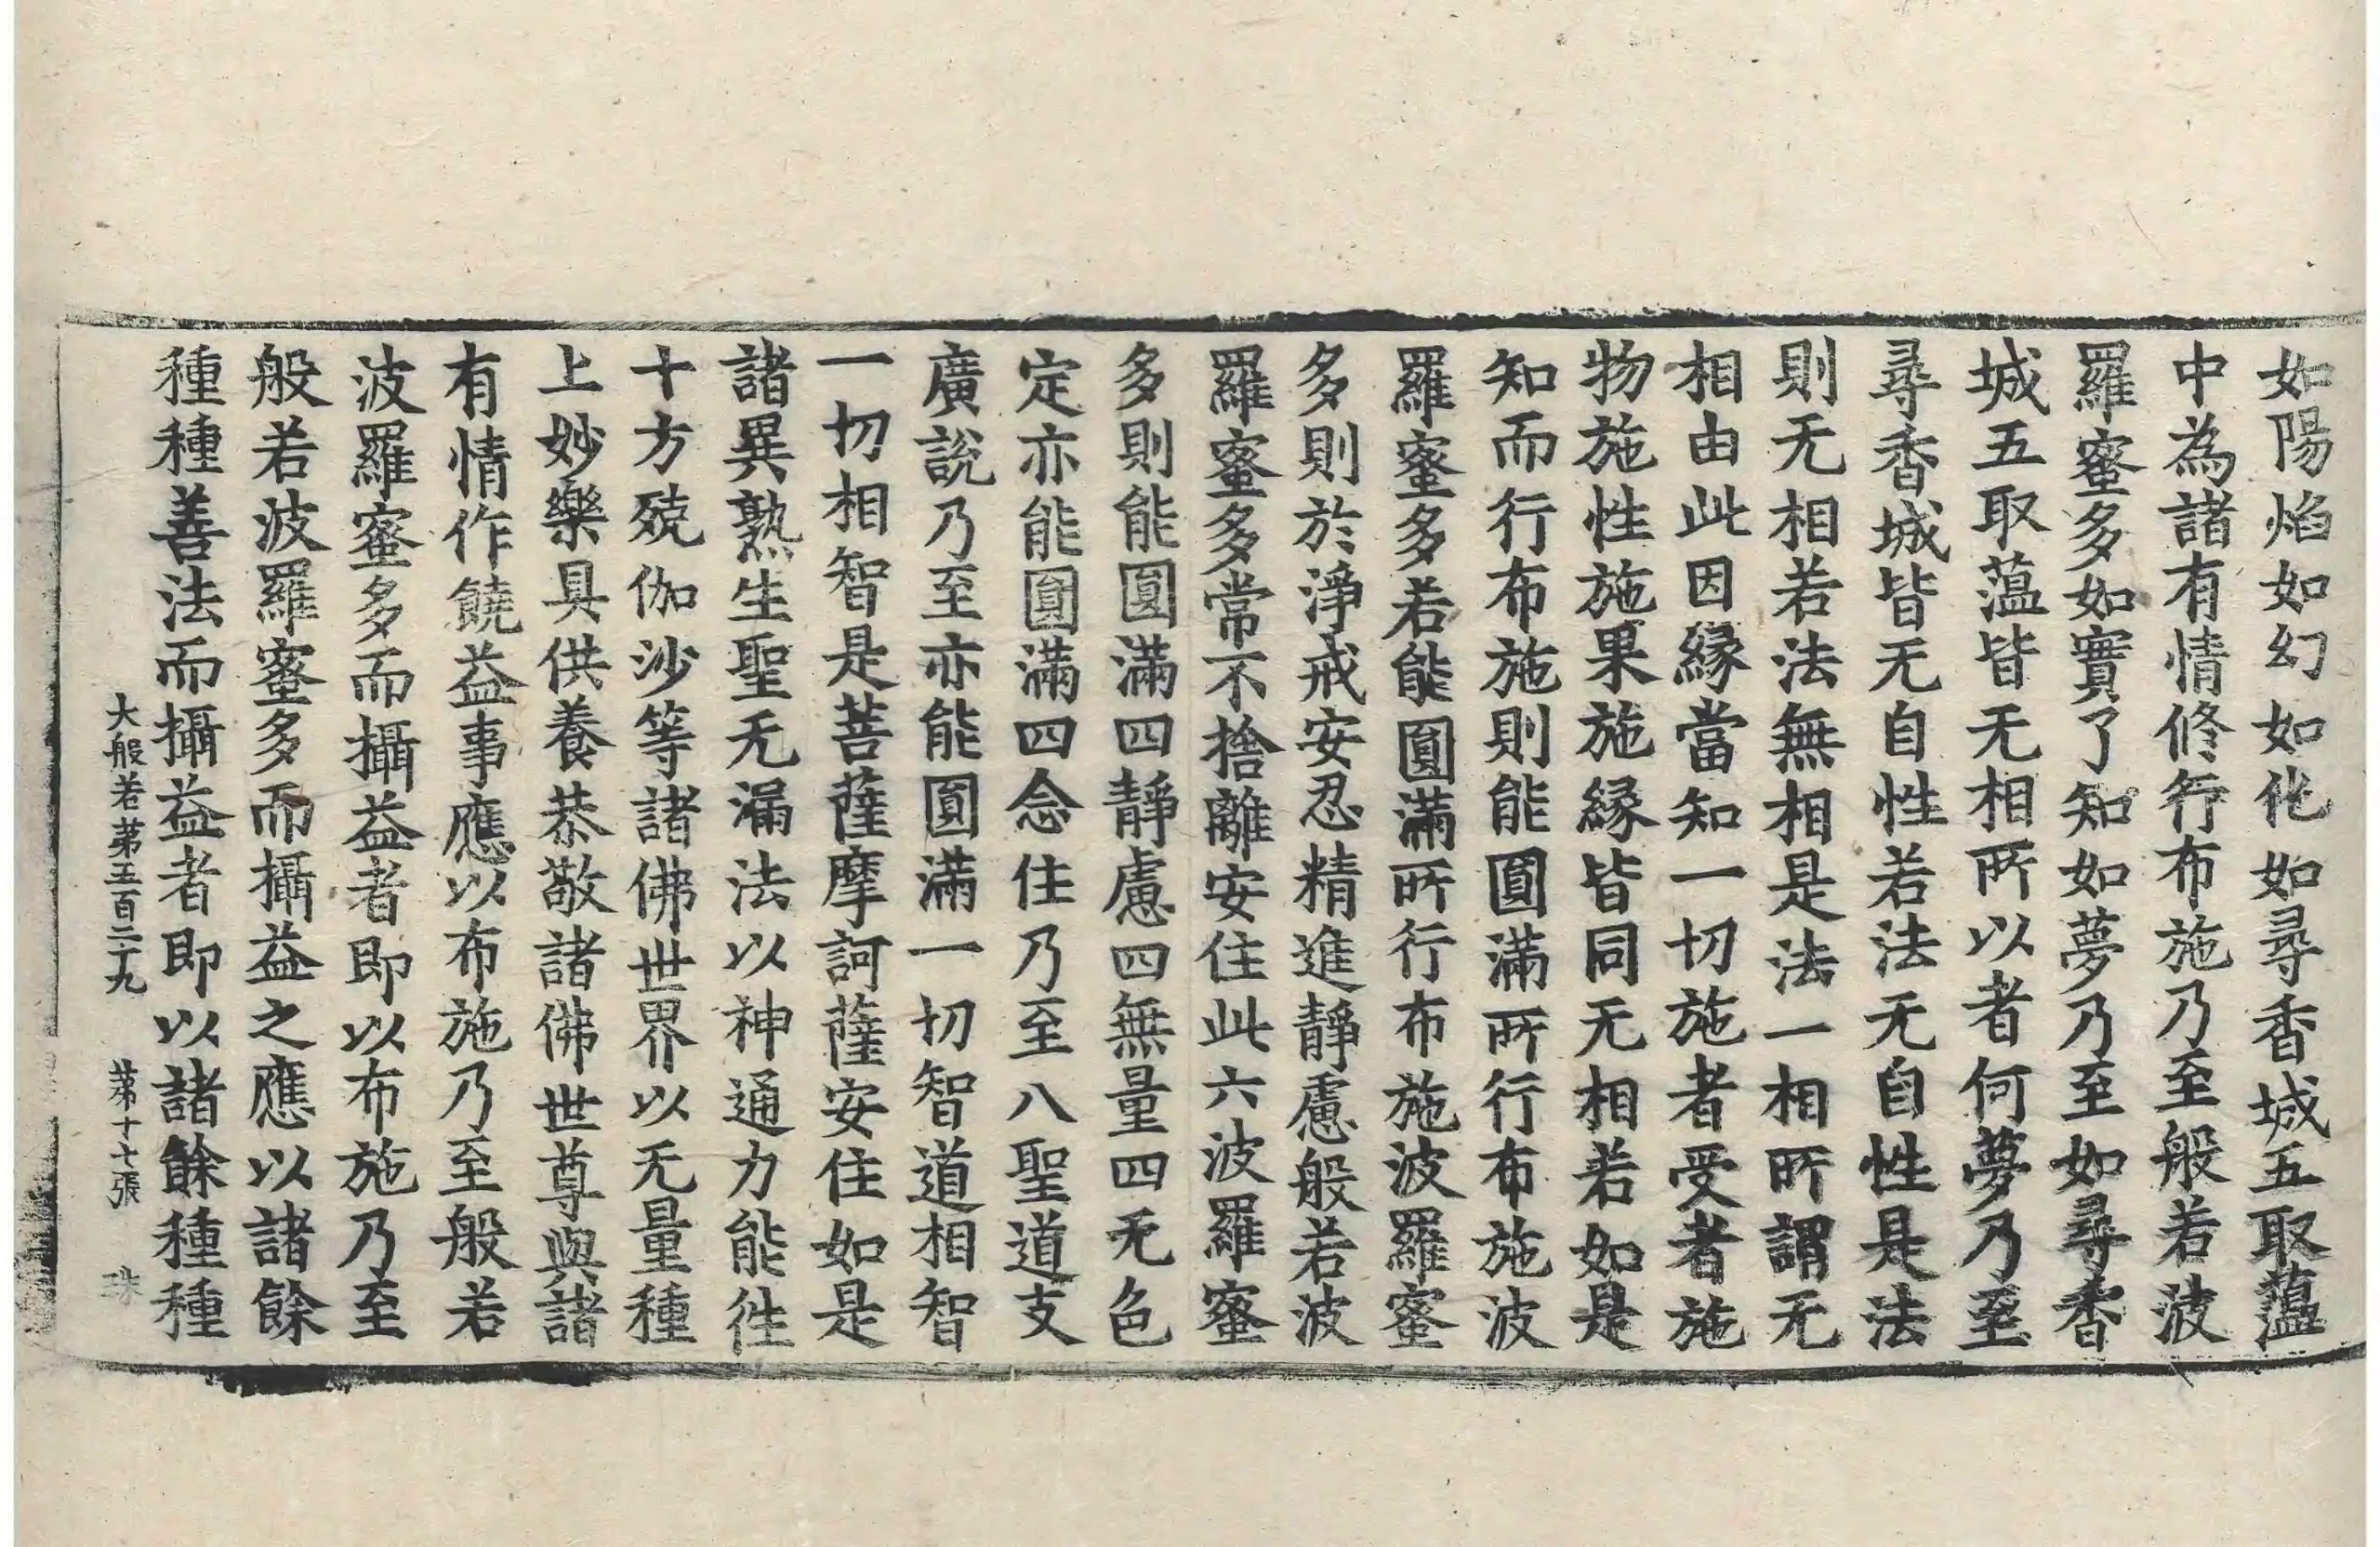 如陽焰如幻如化如尋香城五取蘊
中為諸有情修行布施乃至般若波
羅蜜多如實了知如夢乃至如尋香
城五取蘊皆无相所以者何夢乃至
尋香城皆无自性若法无自性是法
則无相若法無相是法一相所謂无
相由此因緣當知一切施者受者施
物施性施果施緣皆同无相若如是
知而行布施則能圓滿所行布施波
羅蜜多若能圓滿所行布施波羅蜜
多則於淨戒安忍精進靜慮般若波
羅蜜多常不捨離安住此六波羅蜜
多則能圓滿四靜慮四無量四无色
定亦能圓滿四念住乃至八聖道支
廣說乃至亦能圓滿一切智道相智
一切相智是菩薩摩訶薩安住如是
諸異熟生聖无漏法以神通力能徃
十方殑伽沙等諸佛世界以无量種
上妙樂具供養恭敬諸佛世尊與諸
有情作饒益事應以布施乃至般若
波羅蜜多而攝益者即以布施乃至
般若波羅蜜多而攝益之應以諸餘
種種善法而攝益者即以諸餘種種
大般若第五百二十九 第十七張 珠